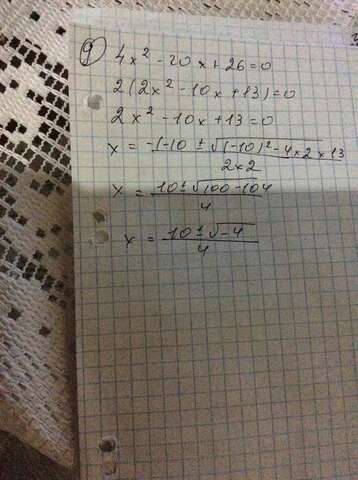 9) 4x² - 20x + 26 = 0
2(2x² - 10x + 13) = 0
2x² - 10x + 13 = 0
x = -(-10 ± √(-10)² - 4×2×13 / 2×2
x = 10 ± √100 - 104 / 4
x = 10 ± √-4 / 4